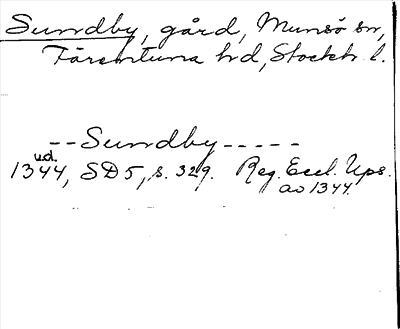 Sundby, gård, Munsö sn,
Färentuna hd, Stockh. l.
--Sundby-----
u.d.
1344, SD5, s. 329. Reg. Eccl. Ups.
av 1344.